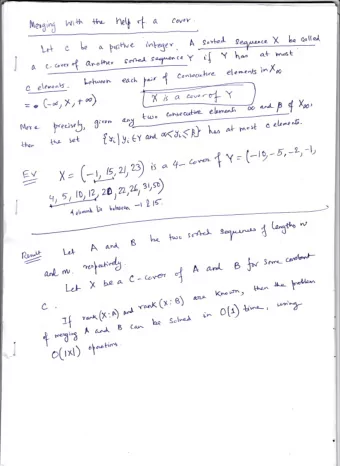 Merging with the help of a cover
Let C be a positive integer. A sorted sequence X be called
a c.cover of another sorted sequence Y if Y has at most
c elements. between each pair of consecutive elements in X∞
= (-∞, X, +∞)
X is a cover of Y
More precisely, given any two consecutive elements ∞ and β of X∞,
then the set {yi | yi ∈ Y and α < yi ≤ β} has at most c elements.
EX X = (-1, 15, 21, 23) is a 4-cover of Y = (-10, -5, -2, -1,
4, 5, 10, 12, 20, 22, 26, 31, 50)
4 elements lie between -1 & 15.
Result Let A and B be two sorted sequences of lengths n
and m. respectively
Let X be a C-cover of A and B for some constant
C.
If rank (X:A) and rank (X:B) are known, then the problem
of merging A and B can be solved in O(1) time, using
O(|X|) operations.